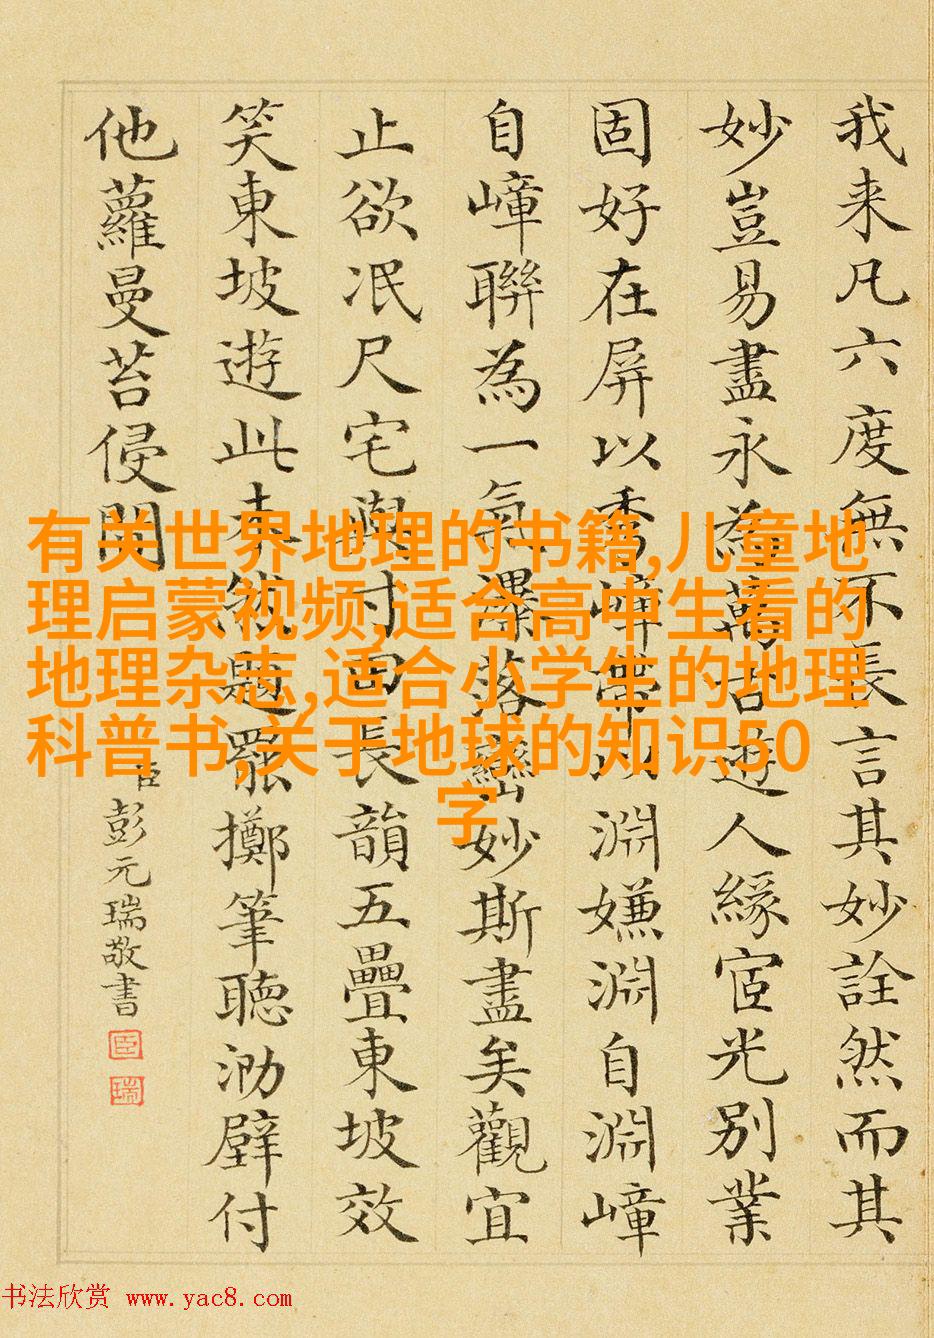 我来凡六度無不長言其妙詮然而其
妙豈易盡永為萬古遊人緣宧光別業
固好在屏以秀嶂帶以淵嫌淵自淵嶂
自嶂聯為一氣落巒妙斯盡矣觀宜
止欲泯尺宅與寸田長韻五疊東坡效
笑東坡遊此未題罷擲筆聽泐壁付
他蘿曼苔侵
臣彭元瑞敬書
臣
瑞
有关世界地理的书籍,儿童地
理启蒙视频,适合高中生看的
地理杂志,适合小学生的地理
科普书,关于地球的知识50
字
书法欣赏 www.yac8.com